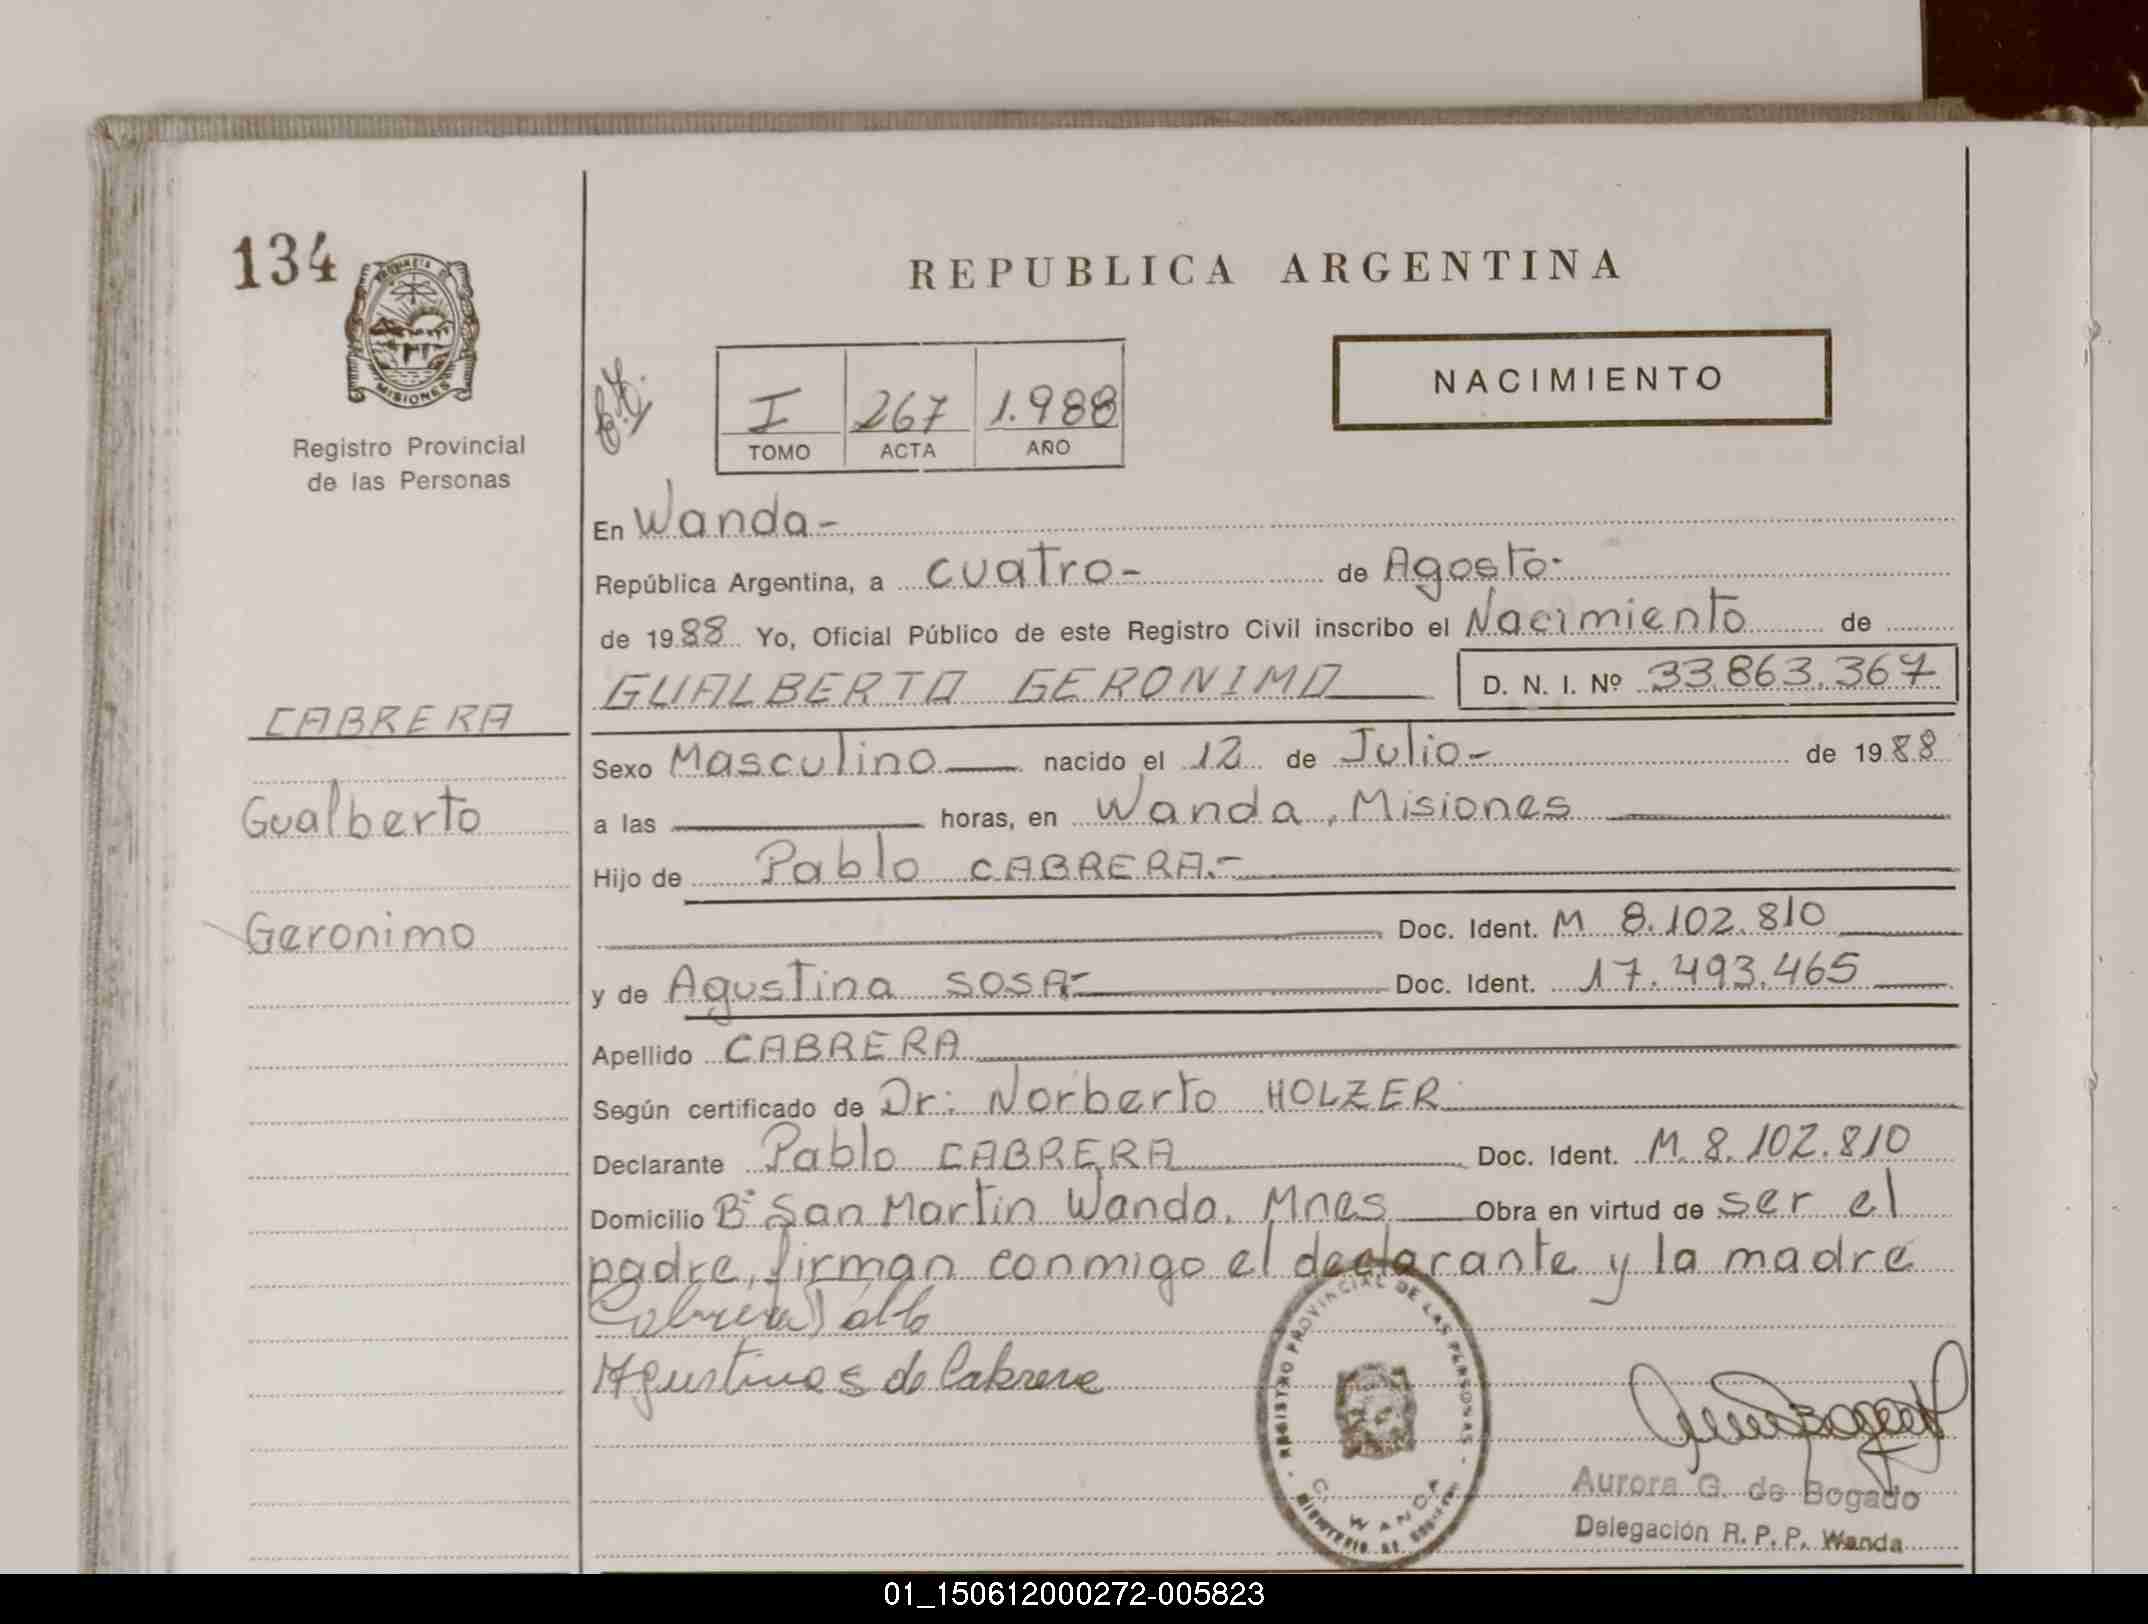 134
PROVINCIA DE
MISIONES
Registro Provincial
de las Personas
CABRERA
Gualberto
Geronimo
REPUBLICA ARGENTINA
I 267 1.988
TOMO ACTA AÑO
NACIMIENTO
En Wanda-
República Argentina, a cuatro- de Agosto-
de 1988 Yo, Oficial Público de este Registro Civil inscribo el Nacimiento de
GUALBERTO GERONIMO D. N. I. Nº 33.863.367
Sexo Masculino nacido el 12 de Julio- de 1988
a las horas, en Wanda, Misiones
Hijo de Pablo CABRERA.-
Doc. Ident. M 8.102.810
y de Agustina SOSA- Doc. Ident. 17.493.465
Apellido CABRERA
Según certificado de Dr: Norberto HOLZER
Declarante Pablo CABRERA Doc. Ident. M. 8.102.810
Domicilio Bº San Martin Wanda. Mnes Obra en virtud de ser el
padre, firman conmigo el declarante y la madre
Cabrera Pablo
Agustina S de Cabrera
REGISTRO PROVINCIAL DE LAS PERSONAS
WANDA
Aurora G. de Bogado
Delegación R. P. P. Wanda
01_150612000272-005823